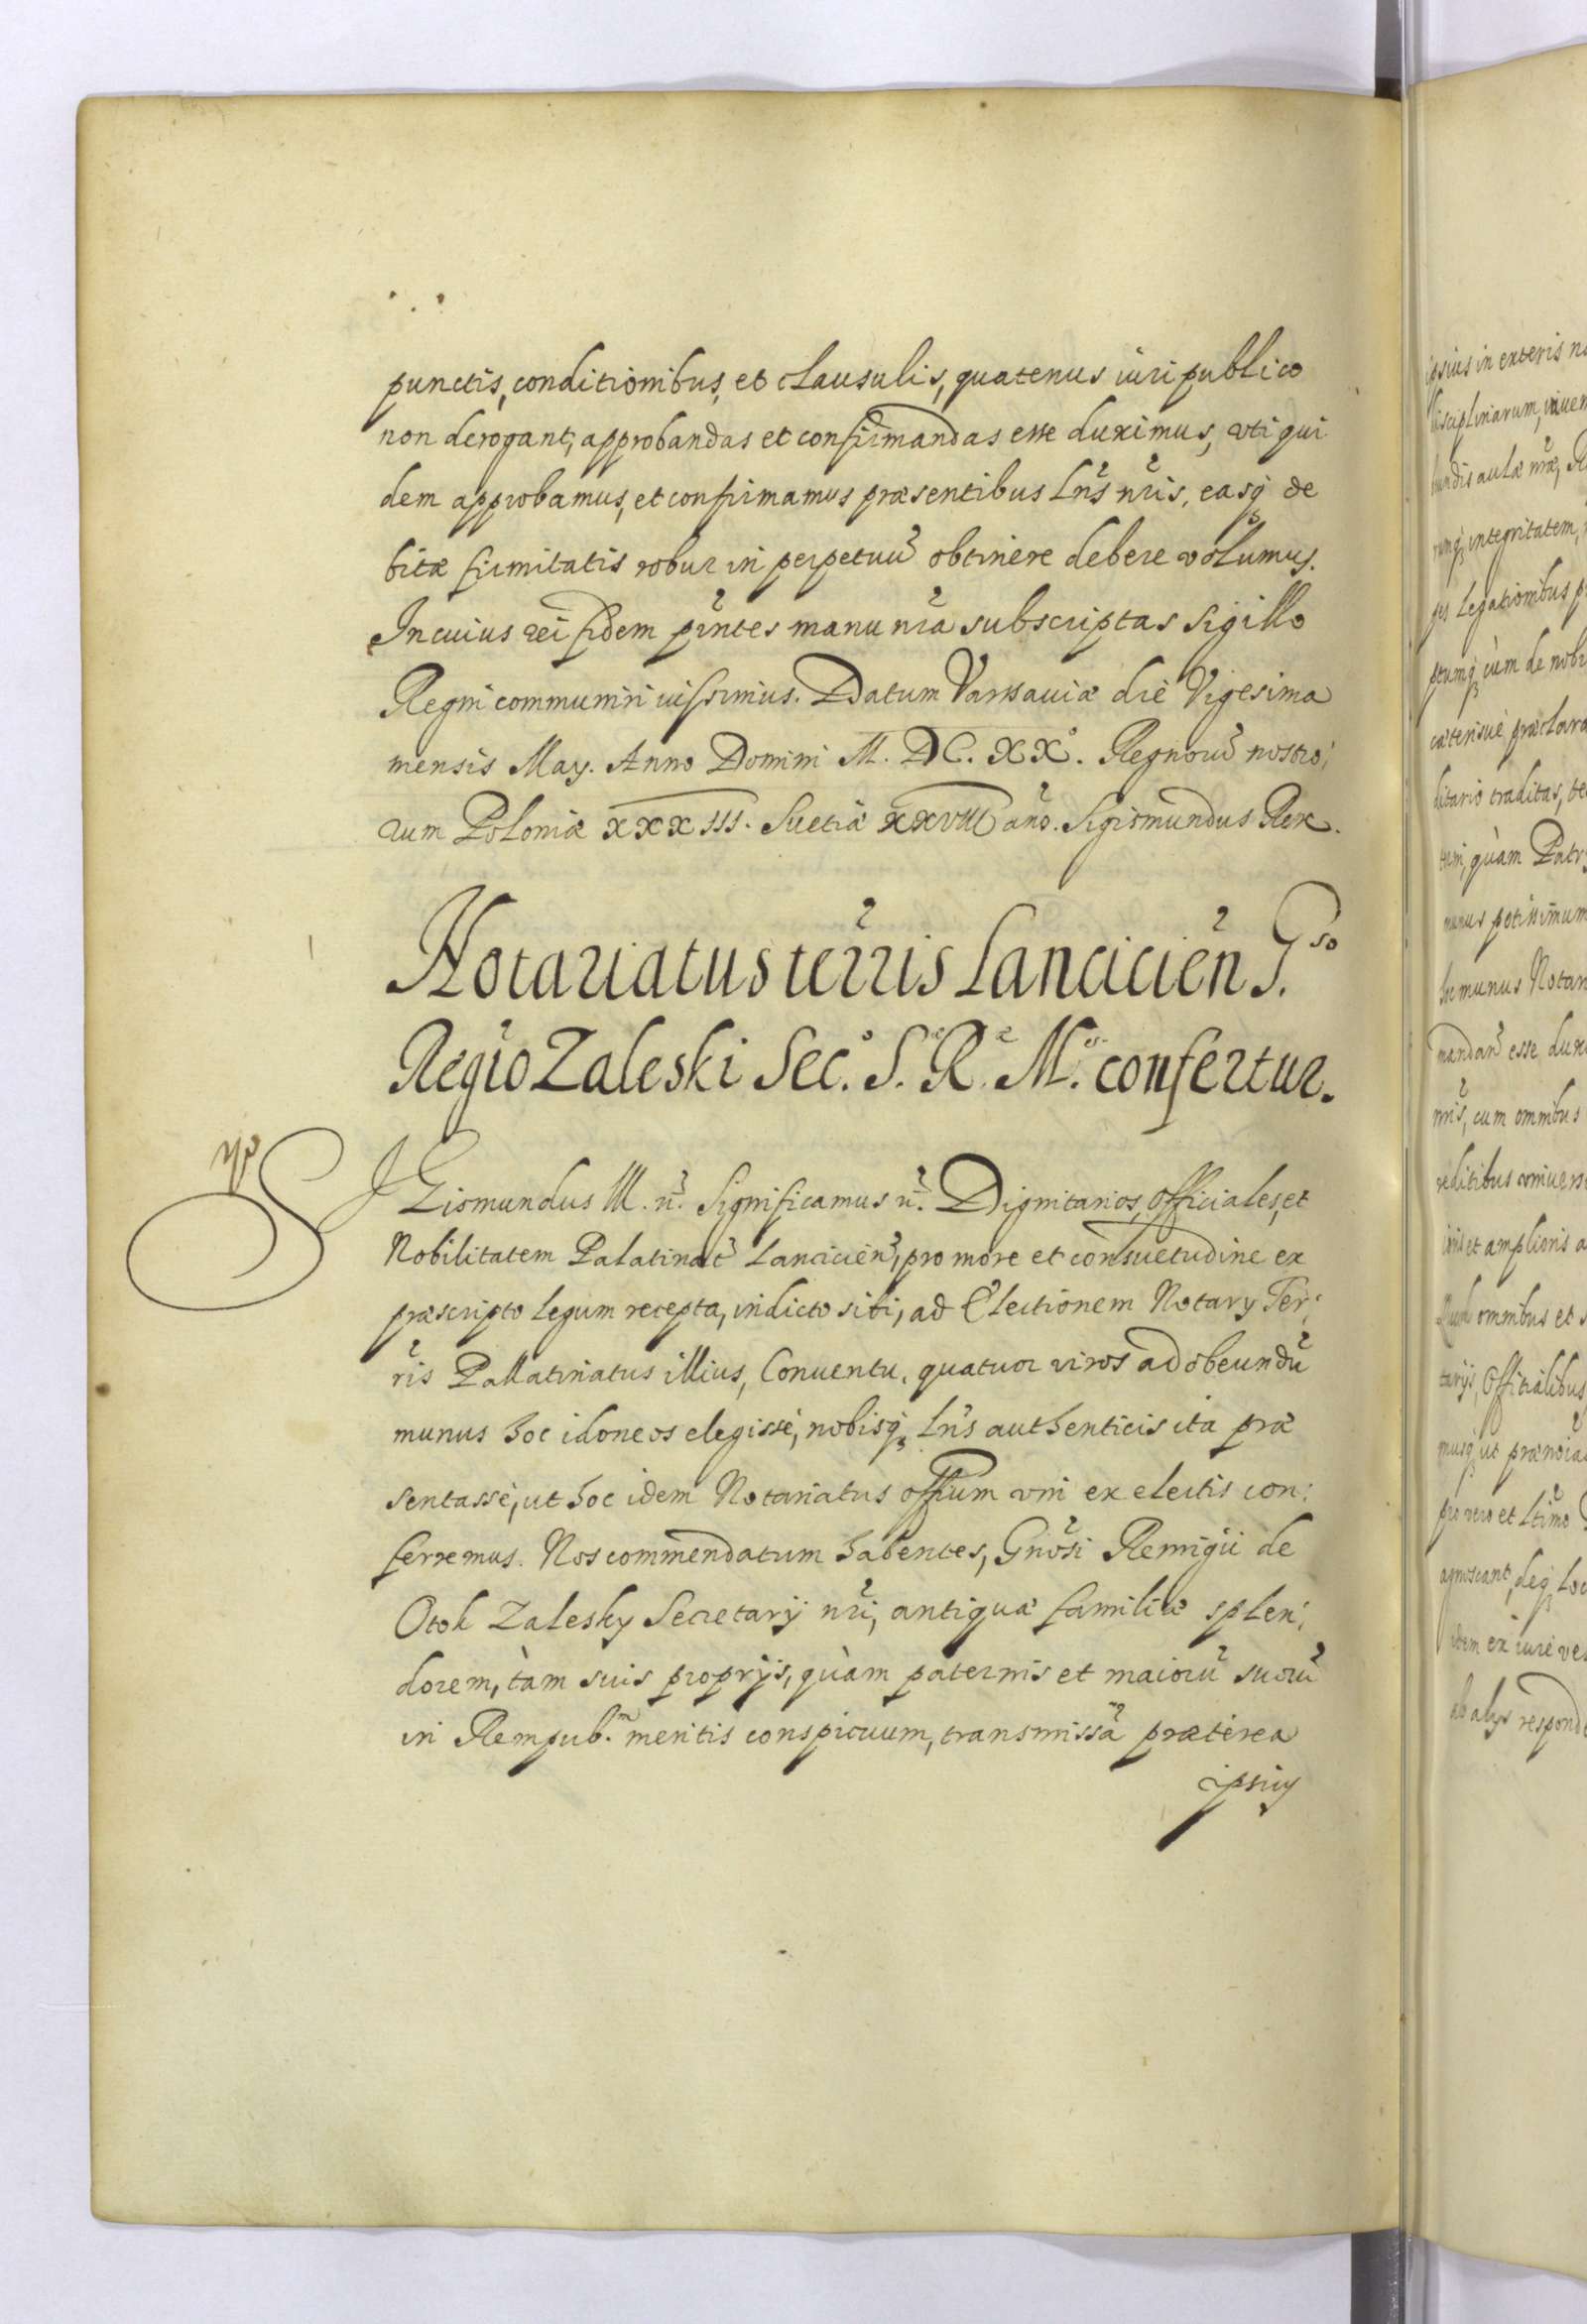 punctis, conditionibus, et clausulis, quatenus iuri publico
non derogant, approbandas et confirmandas esse duximus, vti qui
dem approbamus, et confirmamus præsentibus Lñs nr̃is, easq₃ de
bitæ firmitatis robur in perpetuũ obtinere debere volumus.
In cuius rei fidem pñtes manu nr̃a subscriptas Sigillo
Regni communiri iussimus. Datum Varsauiæ die Vigesima
mensis May. Anno Domini M. DC. XXº. Regnorũ nostro,
rum Poloniæ XXXIII. Suetiæ XXVII año. Sigismundus Rex.
Notariatus terr̃is Lancicieñ G.so
Regio Zaleski Sec.º S. R. M. confertur.
SIGismundus III. ñ. Significamus ñ. Dignitarios, Officiales, et
Nobilitatem Palatinat̃ Lancicieñ, pro more et consuetudine ex
præscripto legum recepta, indicto sibi, ad Electionem Notary Ter,
r̃is Pallatinatus illius, Conuentu, quatuor viros ad obeundũ
munus hoc idoneos elegisse, nobisq₃ Lñs authenticis ita præ
sentasse, ut hoc idem Notariatus offium vni ex electis con,
ferremus. Nos commendatum habentes, Gnõsi Remigii de
Otok Zalesky Secretarij nr̃i, antiquæ familiæ splen,
dorem, tàm suis proprijs, quàm paternis et maiorũ suorũ
in Rempub.m meritis conspicuum, transmissã præterea
ipsiy
ipsius in exteris
disciplinarum,
aulæ nr̃æ,
integritatem,
legationibus
cùm de nobi
præclara
traditas,
quàm Patr
potissimum
munus Notar
esse dux
cum omnibus
reditibus vniuers
et amplioris a
omnibus et
Officialibus
ut
pro vero et Ltimo
agnoscant, deq₃ Lo
ex iure ve
ab alys respond